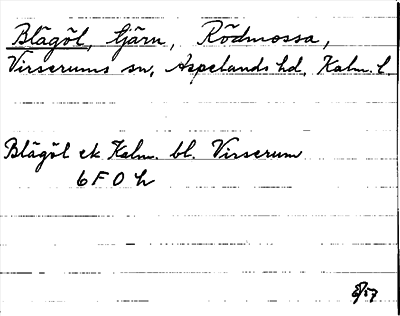 Blågöl, tjärn, Rödmossa,
Virserums sn, Aspelands hd, Kalm. l.
Blågöl ek Kalm. bl. Virserum
6 F 0 h